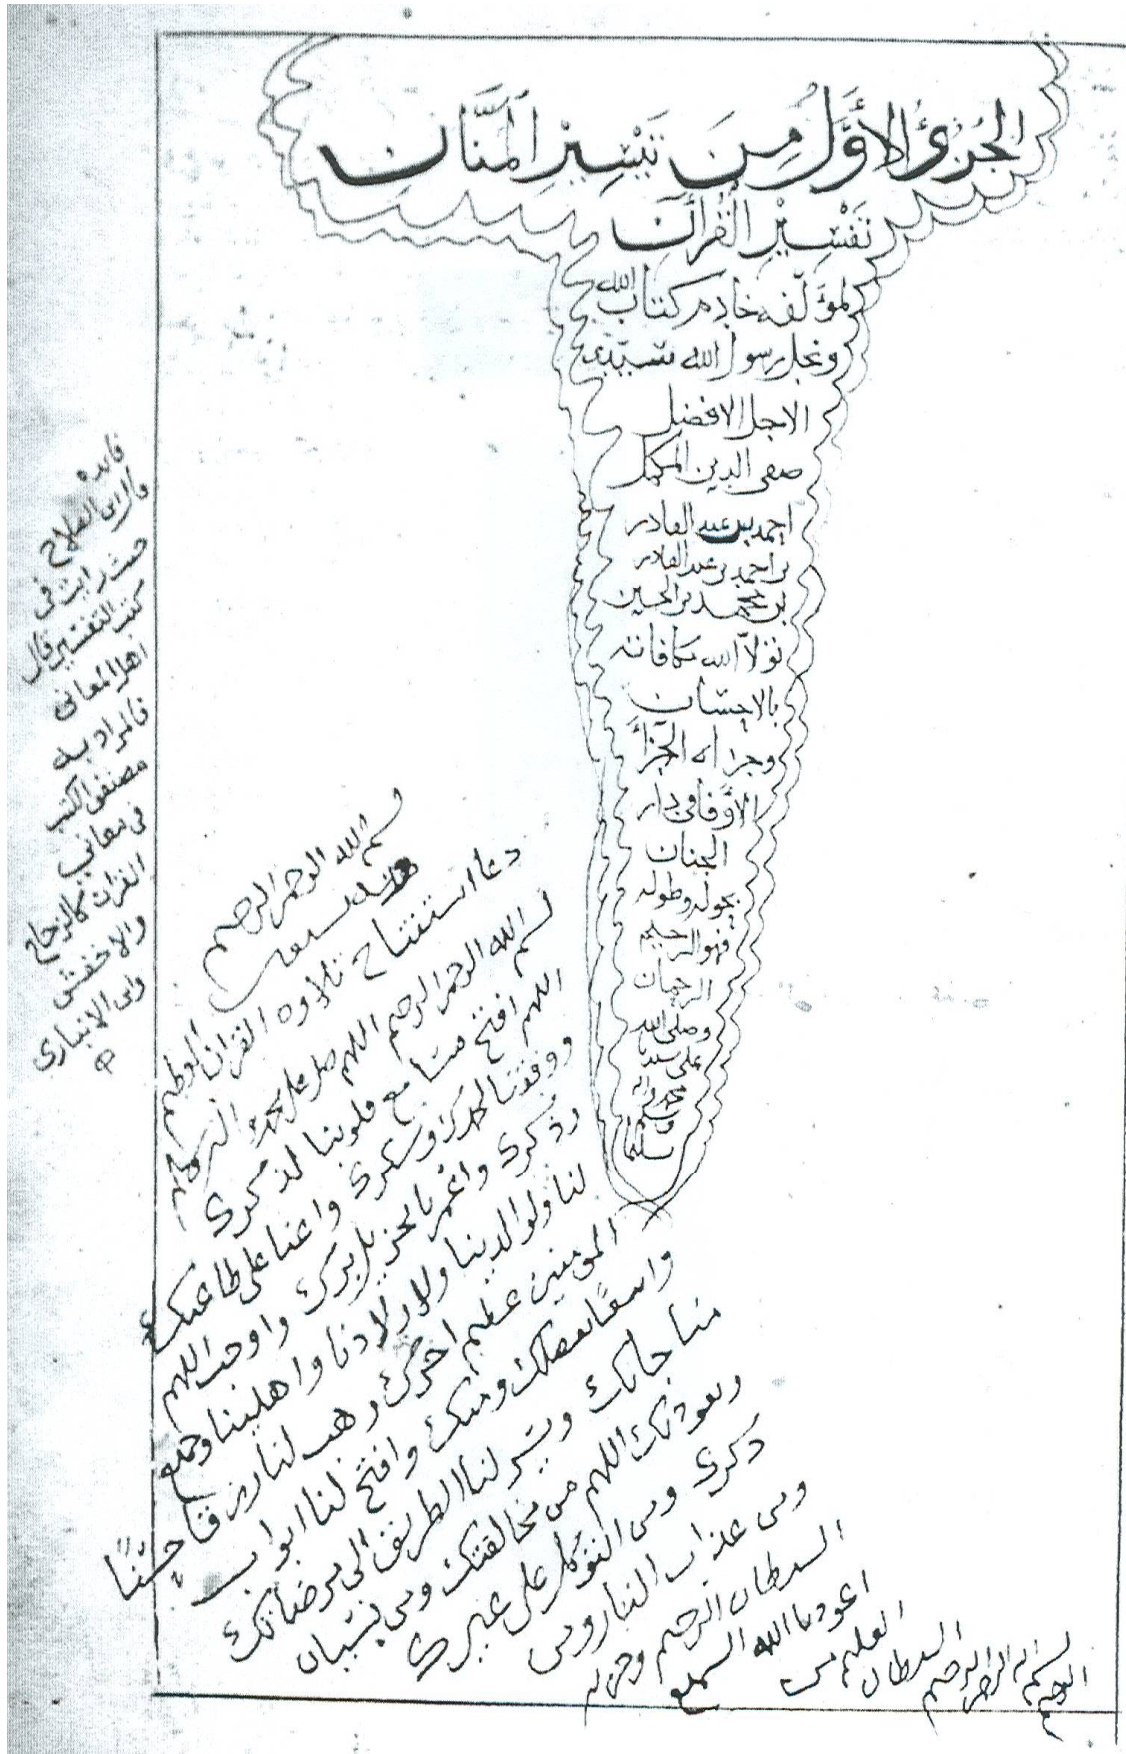 الجُزئُ الأوَّلُ مِنَ تَيْسِيْرِ المَنَّان
تَفْسِيْرِ القُرْآن
لمؤلّفه خادم كتاب الله
ونجل رسول الله سيّدي
الاجل الافضل
صفي الدين المكمل
احمد بن عبد القادر
بن احمد بن عبد القادر
بن محمد بن الحسين
تولّا الله مكافاته
بالاحسان
وجزاه الجزأ
الأوفا في دار
الجنان
بحوله وطوله
فهو الرحيم
الرحمان
وصلى الله
على سيدنا
محمد واله
وسلم
تسليما
فايده
قال ابن الصلاح
حيث رايت في
كتب التفسير قال
اهل المعاني
فالمراد به
مصنفوا الكتب
في معاني
القران كالزجاج
والاخفش
وابن الانباري
بسم الله الرحمن الرحيم
وبه نستعين
دعا استفتاح تلاوه القران العظيم
بسم الله الرحمن الرحيم اللهم صل على محمد اله وسلم
اللهم افتح مسامع قلوبنا لذكرك
ووفقنا لحمدك وشكرك واعنا على طاعتك
وذكرك واغمرنا بجزيل برك واوجب اللهم
لنا ولوالدينا ولاولادنا واهلينا وجميع
المومنين عظيم اجرك وهب لنا رزقا حسنًا
واسعًا بفضلك ومنك وافتح لنا ابواب
مناجاتك ويسّر لنا الطريق الى مرضاتك
ونعوذ بك اللهم من مخالفتك ومن نسيان
ذكرك ومن التوكل على غيرك
ومن عذاب النار ومن
الشيطان الرجيم وحزبه
اعوذ بالله السميع
العليم من
الشيطان
الرجيم بسم الله الرحمن الرحيم